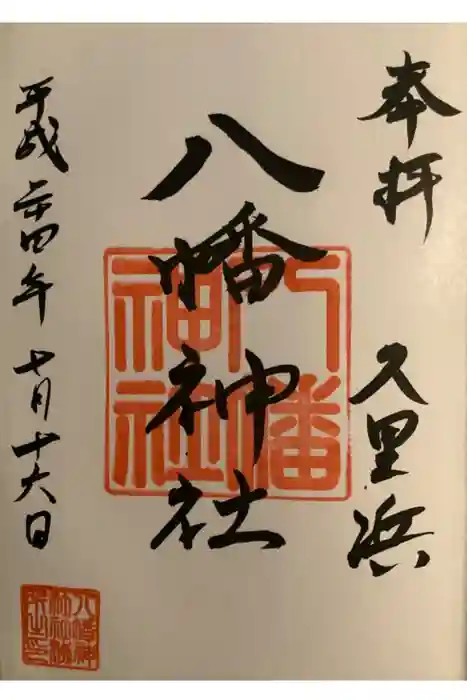 奉拝 久里浜
八幡神社
八幡神社
平成二十四年 七月十六日